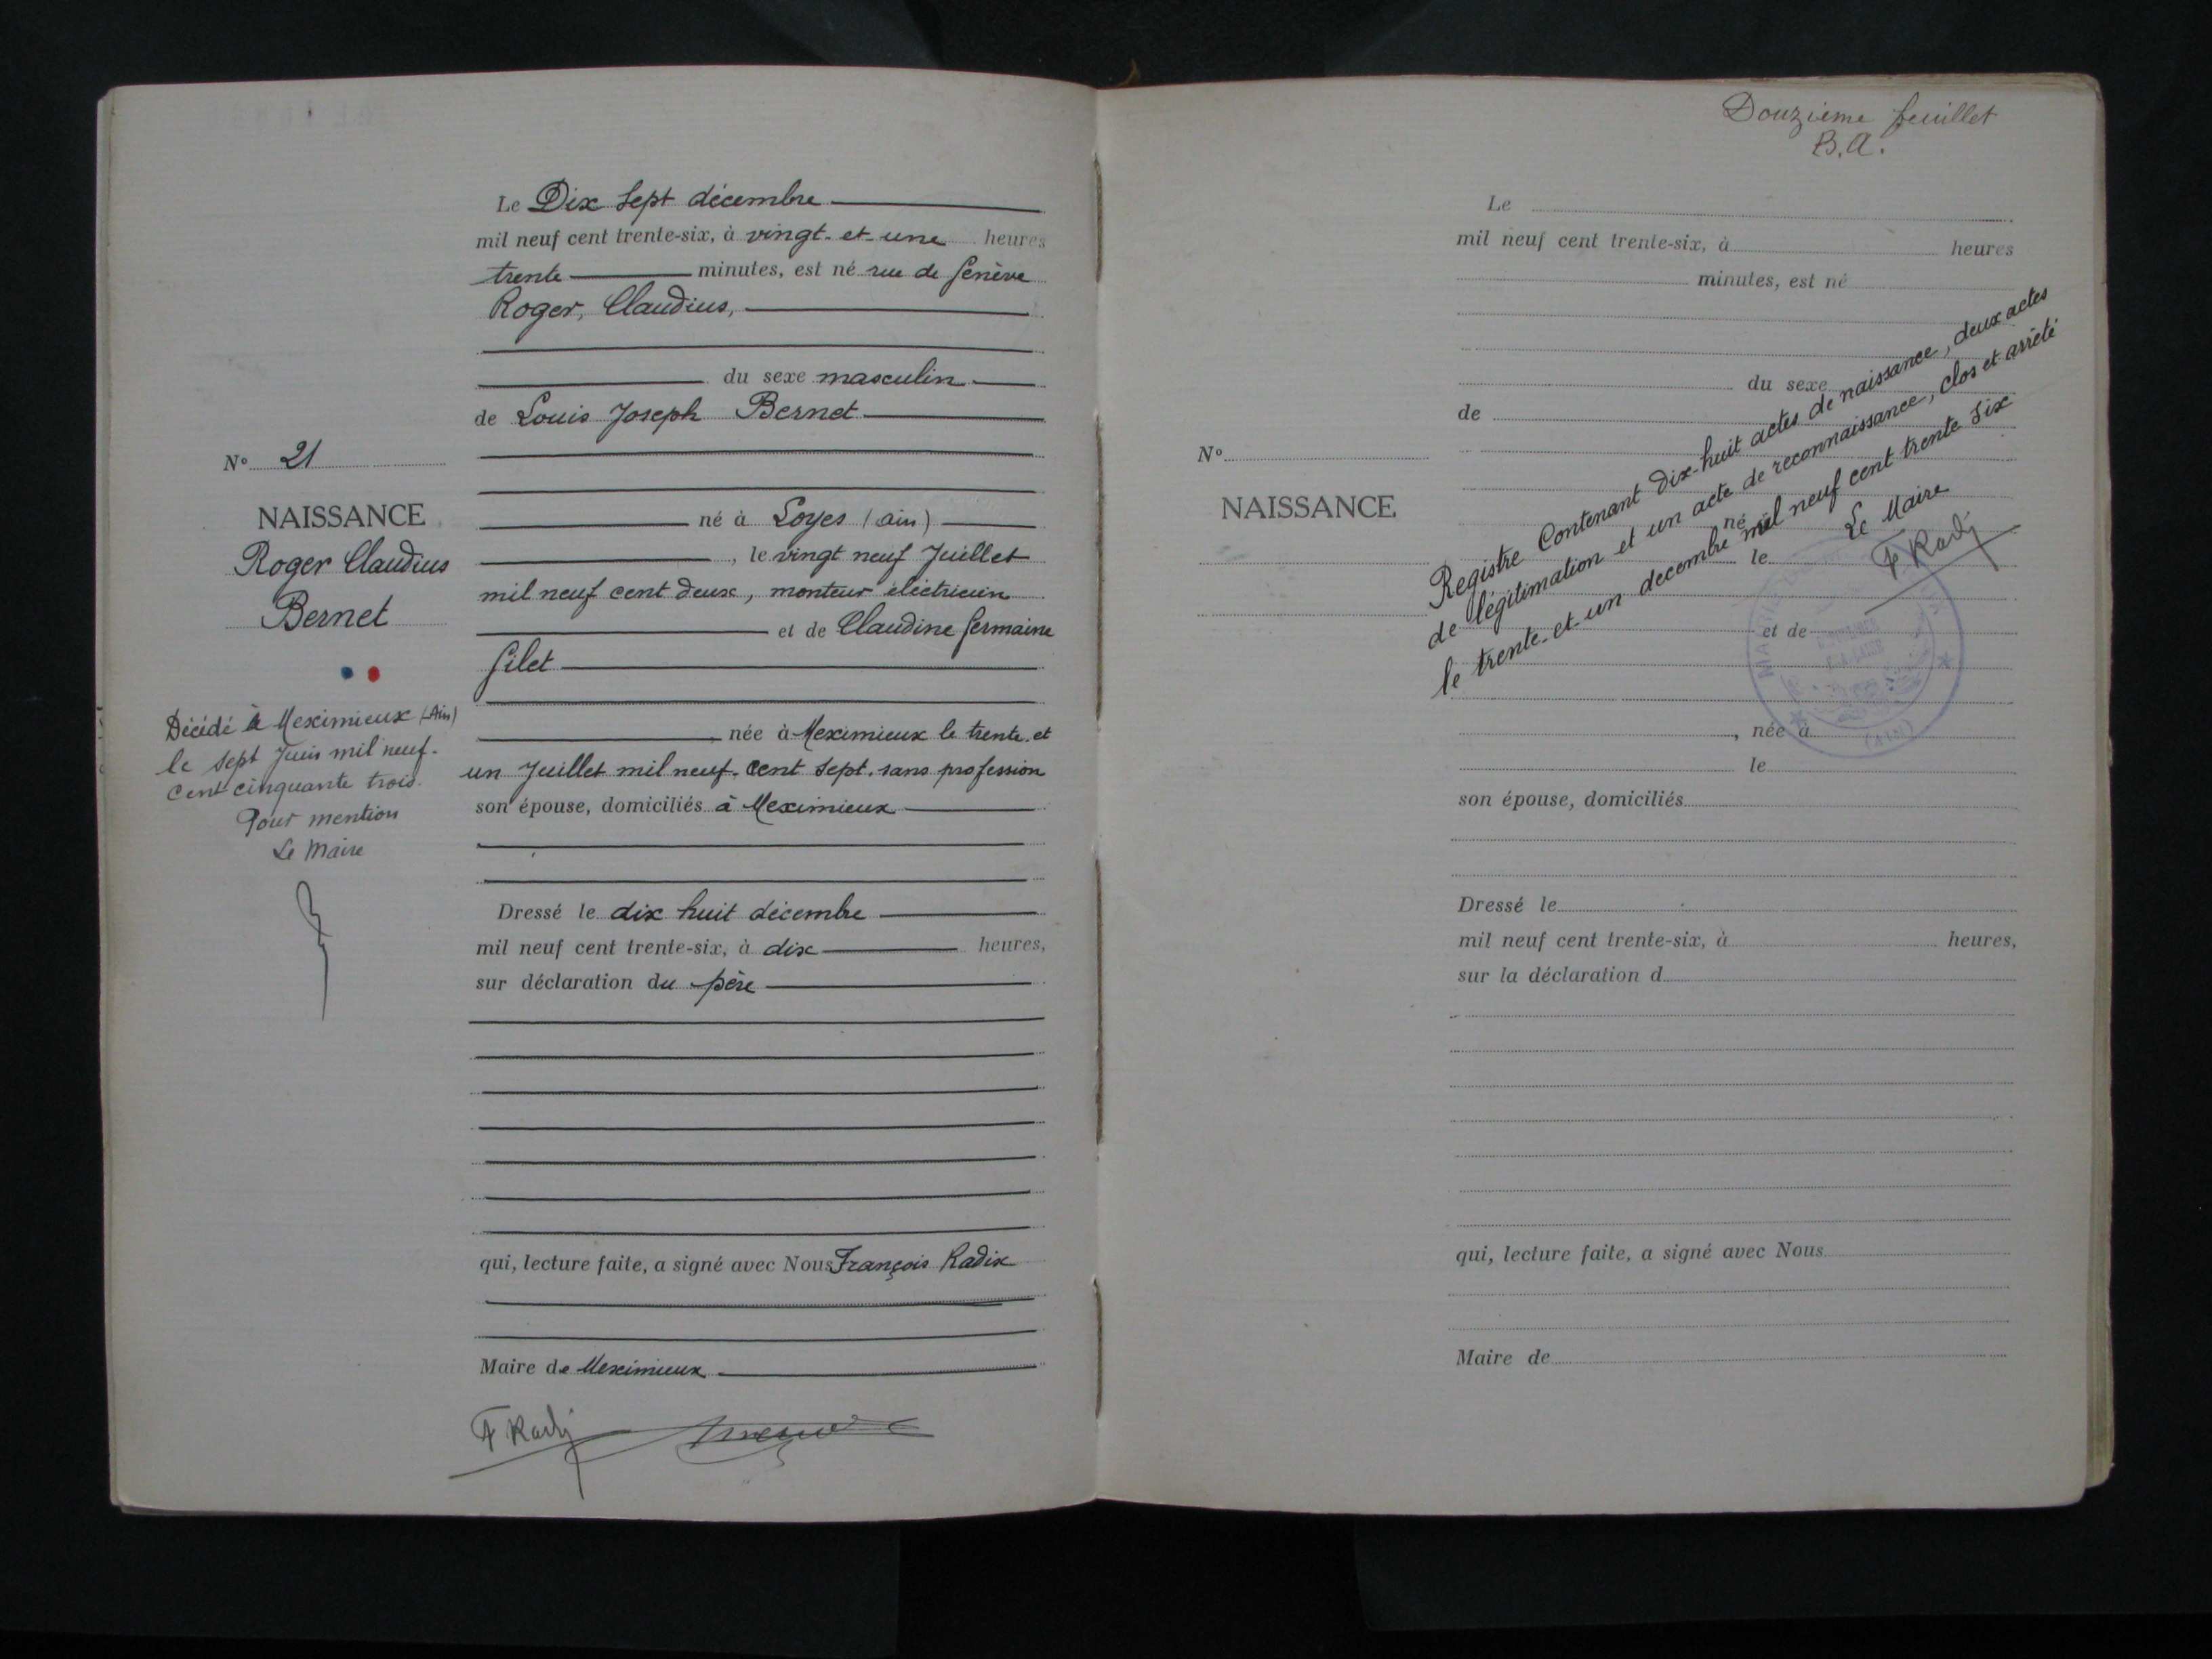 Le Dix Sept décembre
mil neuf cent trente-six, à vingt-et-une heures
trente minutes, est né rue de Genève
Roger, Claudius,
du sexe masculin
de Louis Joseph Bernet
N° 21
NAISSANCE
Roger Claudius
Bernet
Décédé à Meximieux (Ain)
le sept Juin mil neuf-
cent cinquante trois.
Pour mention
Le Maire
né à Loyes (Ain)
, le vingt neuf Juillet
mil neuf cent deux, monteur électricien
et de Claudine Germaine
Gilet
née à Meximieux le trente et
un Juillet mil neuf-cent sept. sans profession
son épouse, domiciliés à Meximieux
Dressé le dix huit décembre
mil neuf cent trente-six, à dix heures,
sur déclaration du père
qui, lecture faite, a signé avec Nous François Radix
Maire de Meximieux
Douzième feuillet
B.A.
Le
mil neuf cent trente-six, à heures
minutes, est né
du sexe
de
N°
NAISSANCE
né à
le
et de
, née à
le
son épouse, domiciliés
Dressé le
mil neuf cent trente-six, à heures,
sur la déclaration d
qui, lecture faite, a signé avec Nous
Maire de
Registre Contenant dix-huit actes de naissance, deux actes
de légitimation et un acte de reconnaissance, clos et arrêté
le trente-et-un decembre mil neuf cent trente six
Le Maire
MAIRIE
(AIN)